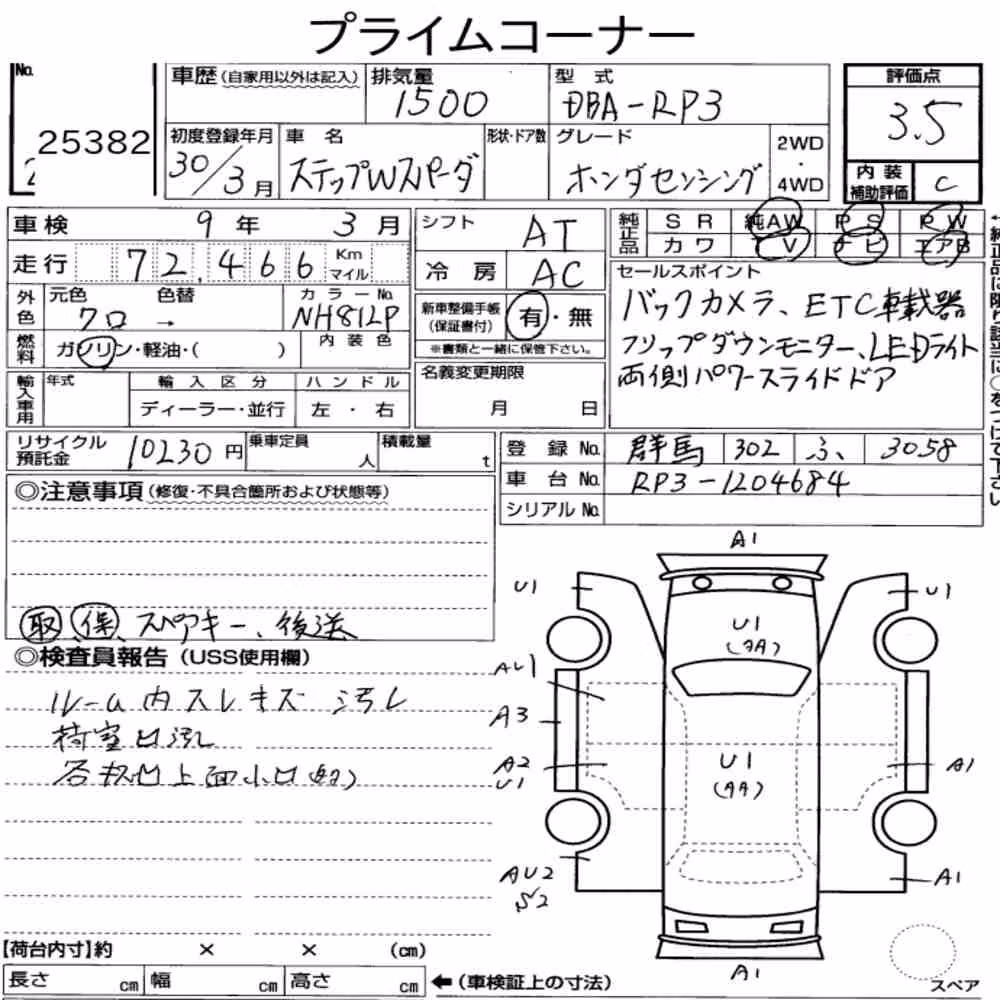 プライムコーナー
No.
25382
車歴(自家用以外は記入)
排気量
1500
型式
DBA-RP3
評価点
3.5
初度登録年月
30/3月
車名
ステップWスパーダ
形状・ドア数
グレード
ホンダセンシング
2WD
・
4WD
内装
補助評価
C
車検 9年 3月
走行 72,466 Km マイル
シフト AT
冷房 AC
純正品
SR 純AW PS PW
カワ TV ナビ エアB
外色
元色 クロ
色替 →
カラーNo. NH812P
内装色
燃料
ガソリン・軽油・( )
新車整備手帳
(保証書付)
有・無
※書類と一緒に保管下さい。
セールスポイント
バックカメラ、ETC車載器
フリップダウンモニター、LEDライト
両側パワースライドドア
輸入車用
年式
輸入区分
ディーラー・並行
ハンドル
左・右
名義変更期限
月 日
リサイクル
預託金
10230円
乗車定員
人
積載量
t
登録No. 群馬 302 ふ 3058
車台No. RP3-1204684
シリアルNo.
◎注意事項(修復・不具合箇所および状態等)
取、保、スペアキー、後送
◎検査員報告(USS使用欄)
ルーム内スレキズ 汚レ
荷室凹汚レ
A1
U1
U1
U1
(AA)
AU1
A3
A2
U1
U1
(AA)
A1
AU2
S2
A1
A1
スペア
【荷台内寸】約 × × (cm)
長さ cm 幅 cm 高さ cm
←(車検証上の寸法)